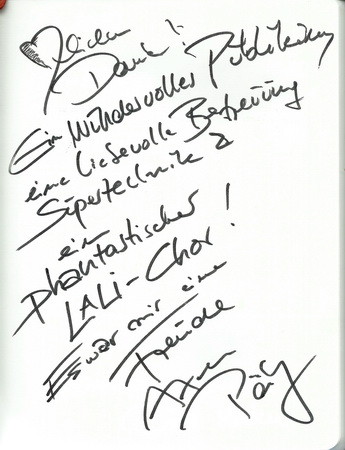 lichen
Dank!
Ein wundervolles Publikum
eine liebevolle Betreuung
Supertechnik &
ein
phantastischer
LALI-Chor!
Es war mir eine
Freude